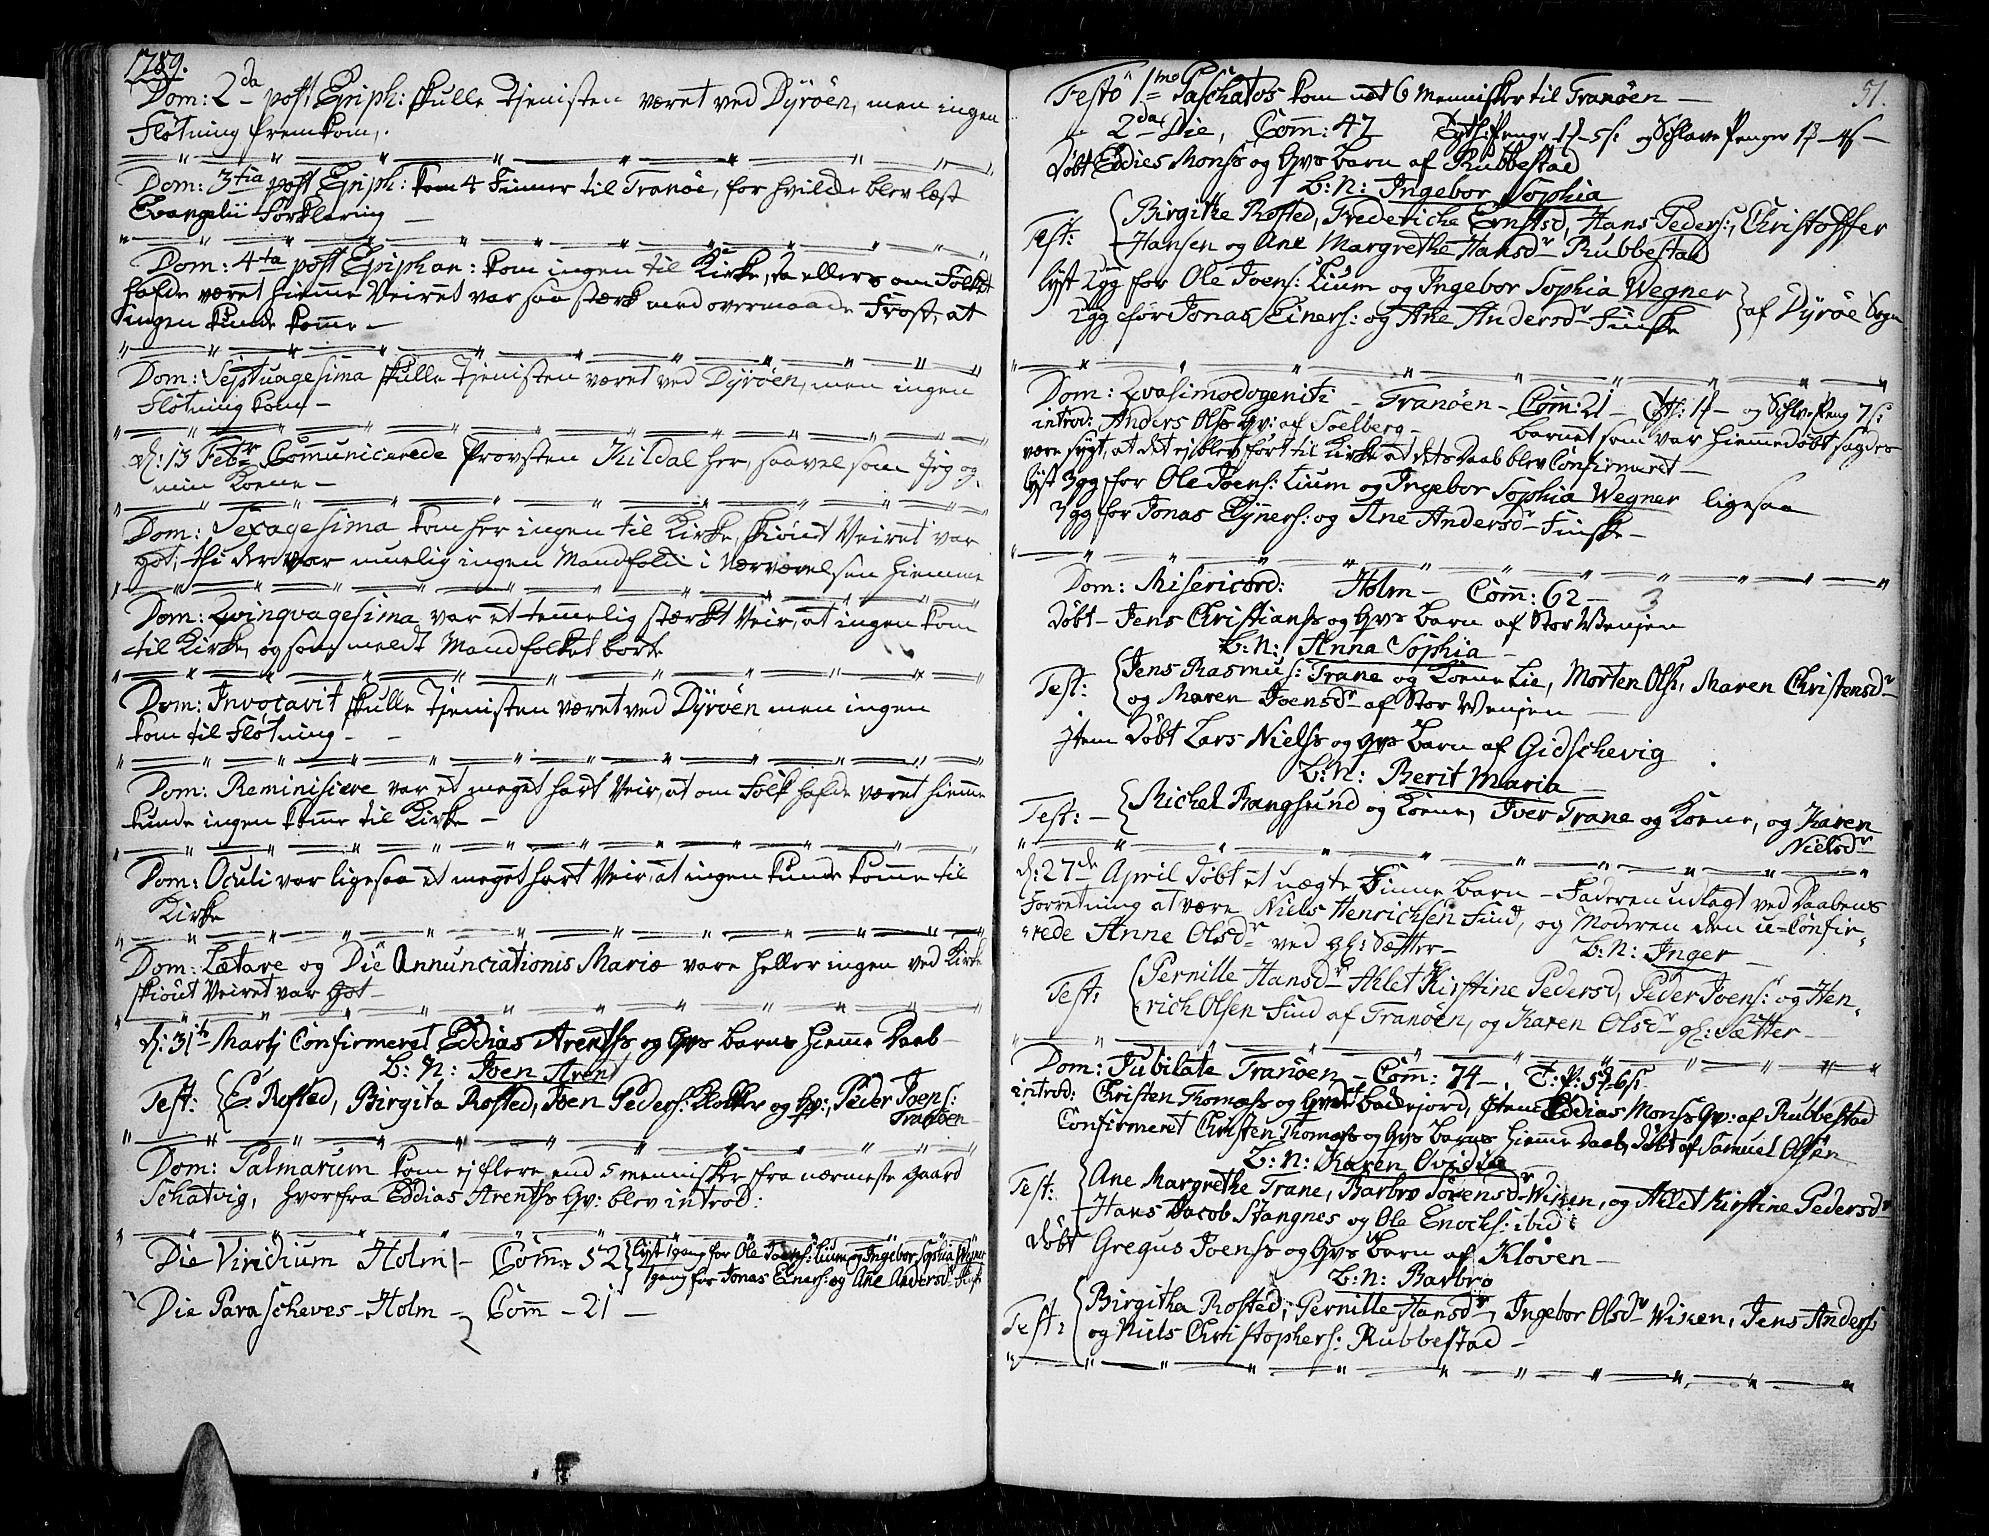 1789.
Dom: 2da post Epiph: skulle Tjenisten været ved Dyröen, men ingen
Fløtning fremkom,.
Dom: 3tia post Epiph: kom 4 Finner til Tranöe, for hvilde blev læst
Evangelii Forklaring
Dom: 4ta post Epiphan: kom ingen til Kirke, da ellers om Folket
hafde været hiemme Veiret var saa stærk med overmaade Frost, at
ingen kunde komme
Dom: Septuagesima skulle Tjenisten været ved Dyröen, men ingen
Fløtning kom
d: 13 Febr Communicerede Provsten Kildal her, saavelsom Jeg og
min Kone
Dom: Sexagesima kom her ingen til Kirke, skiönt Veiret var
got, thi der var muelig ingen Mandfolk i Nærværelsen hiemme
Dom: Qvinqvagesima var et temmelig stærkt Veir, at ingen kom
til Kirke, og som meldt Mandfolket borte
Dom: Invocavit skulle Tjenisten været ved Dyröen men ingen
kom til Fløtning
Dom: Reminiscere var et meget hart Veir, at om Folk hafde været hiemme
kunde ingen komme til Kirke
Dom: Oculi var ligesaa et meget hart Veir, at ingen kunde komme til
Kirke
Dom: Lætare og Die Annunciationis Mariæ vare heller ingen ved Kirke
skiönt Veiret var got
d: 31te Martj Confirmeret Eddias Arentss og Qvs barns hiemme Daab
B: N: Joen Arent
Test: E. Rosted, Birgita Rosted, Joen Peders: Klokker og Qv:, Peder Joens:
Tranöen
Dom: Palmarum kom ej flere end 5 mennisker fra nærmeste gaard
Schatvig, hvorfra Eddias Arentss Qv: blev introd:
Die Viridium Holm - Comm: 52 lyst 1gang for Ole Joens: Lium og Ingebor Sophia Wegner
1gang for Jonas Einers: og Ane Andersdr Finsk
Die Parascheves - Holm - Comm - 21
51.
Festo 1mo Paschatos kom næt 6 Mennisker til Tranöen
2da Die, Comm: 47 og Schlave Penger
døbt Eddies Monss og Qvs barn af Rubbestad
B: N: Ingebor Sophia
Test: Birgithe Rosted, Frederiche Ernstsd, Hans Peders:, Christoffer
Hansen og Ane Margrethe Hansdr Rubbestad
lyst 2gg for Ole Joens: Lium og Ingebor Sophia Wegner
2gg for Jonas Einers: og Ane Andersdr Finske af Dyröe Sogn
Dom: Qvasimodogeniti - Tranöen - Comm: 21 - og Schlv: Peng 7s:
introd: Anders Olss Qv: af Soelberg - barnet som var hiemmedøbt sagdes
være sygt, at det ej blev ført til Kirke at dets Daab blev Confirmeret
lyst 3gg for Ole Joens: Lium og Ingebor Sophia Wegner ligesaa
3gg for Jonas Ejners: og Ane Andersdr Finske
Dom: Misericord: Holm - Comm: 62
døbt - Jens Christianss og Qvs barn af Stor Wenjen
B: N: Anna Sophia
Test: Jens Rasmus: Trane og Kone Lie, Morten Olss, Maren Christensdr
og Maren Joensdr af Stor Wenjen
Item døbt Lars Nielss og Qvs barn af Gidschevig
B: N: Berit Maria
Test: Michel Rangsund og Kone, Iver Trane og Kone, og Karen
Nielsdr
d: 27de April døbt et uægte Finne barn - Faderen udlagt ved Daabens
Forretning at være Niels Henrichsen Find, og Moderen den u-Confir-
rede Anne Olsdr ved gl: Sætter - B: N: Inger
Test: Pernille Hansdr Ahlet Kirstine Pedersd, Peder Joens: og Hen-
rich Olsen Find af Tranöen, og Karen Olsdr gl: Sætter
Dom: Jubilate Tranöen - Comm: 74 -
introd: Christen Thomass og Qv: Item Eddias Monss Qv: af Rubbestad
Confirmeret Christen Thomass og Qvs barns hiemme Daab, døbt af Samuel Olsen
B: N: Karen Ovidia
Test: Ane Margrethe Trane, Barbro Sörensdr Wiken, og Ahlet Kirstine Pedersdr
Hans Jacob Stangnes og Ole Enochs: ibid:
døbt Gregus Joenss og Qvs barn af Kløven
B: N: Barbro
Test: Birgitha Rosted, Pernille Hansdr, Ingebor Olsdr Wiken, Jens Anderss
og Niels Christophers: Rubbestad